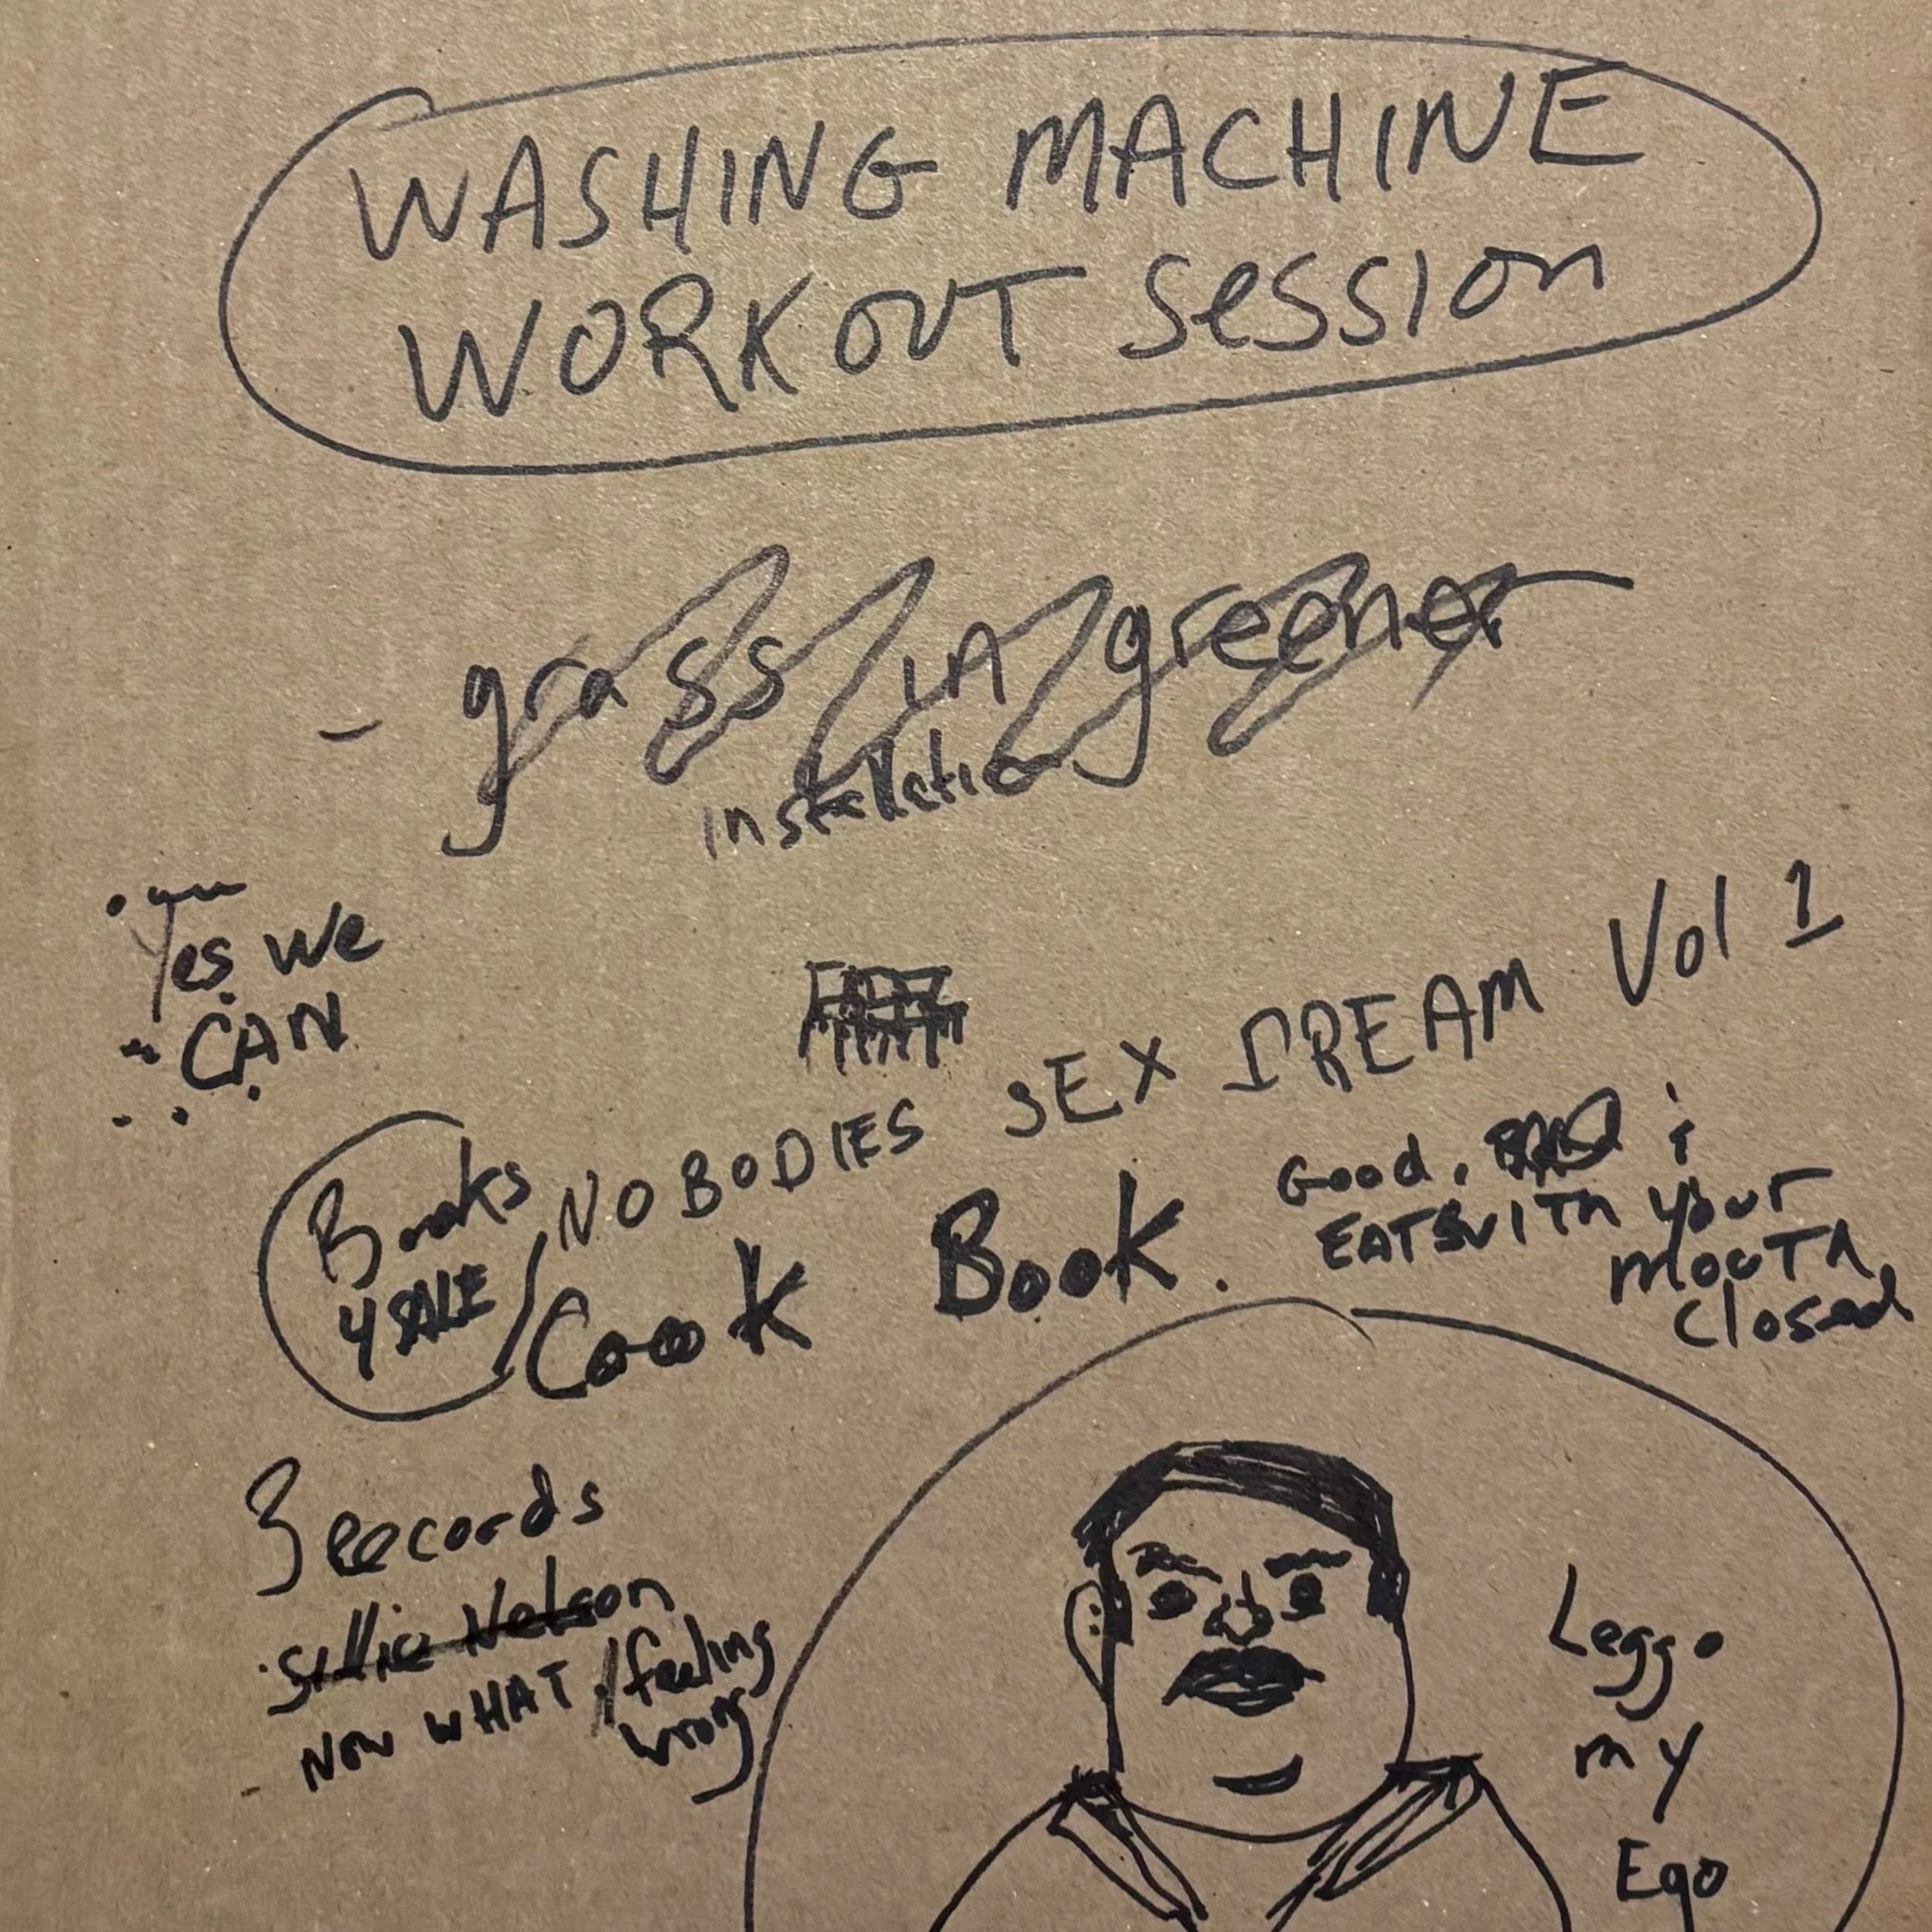 WASHING MACHINE
WORKOUT Session
- grass IA greener
Installation
Yes we
CAN
NOBODIES SEX DREAM Vol 1
Books
4 SALE
Cook Book.
Good.
EATS WITH your
mouth
closed
3 records
Nelson
NOW WHAT / feeling
wrong
Leggo
my
Ego